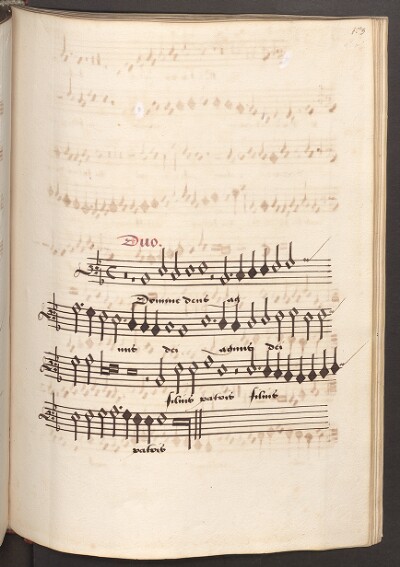 Duo.
Domine deus ag
nus dei agnus dei
filius patris filius
patris